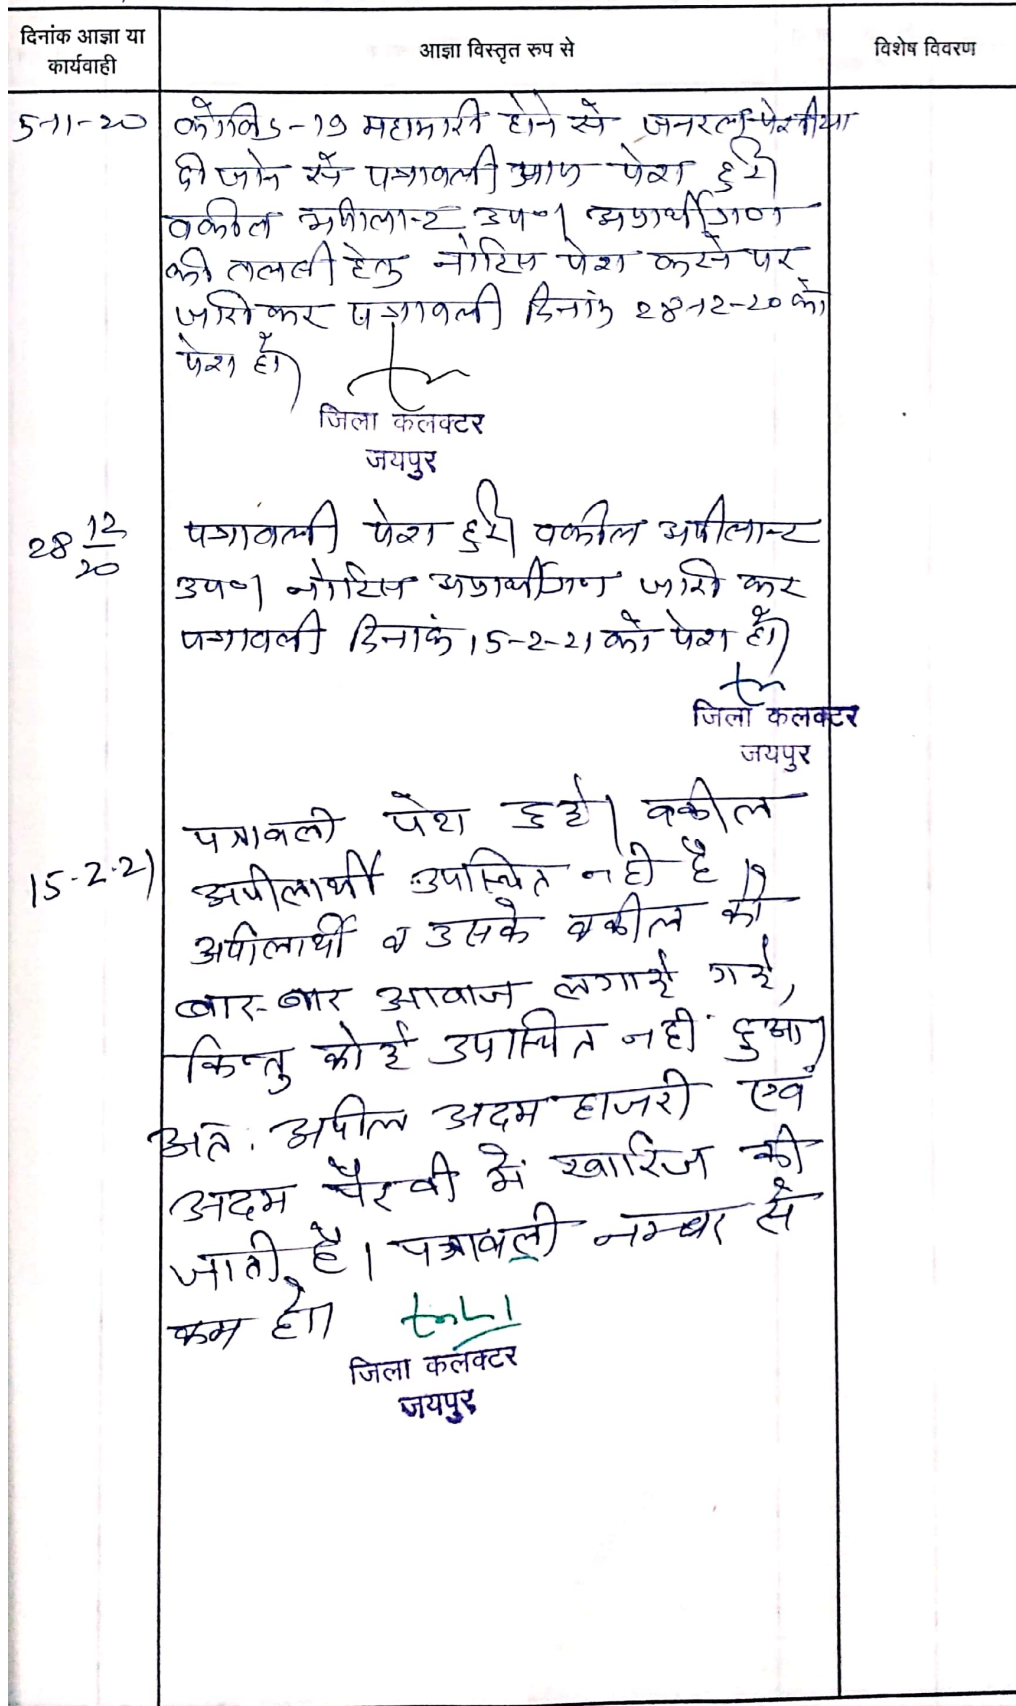 दिनांक आज्ञा या
कार्यवाही
आज्ञा विस्तृत रुप से
विशेष विवरण
5-11-20
कोविड-19 महामारी होने से जनरल पेशीया
दी जाने से पत्रावली आज पेश हुई।
वकील अपीलान्ट उप०। अप्रार्थीगण
की तलबी हेतु नोटिस पेश करने पर
जारी कर पत्रावली दिनांक 28-12-20 को
पेश हो।
जिला कलक्टर
जयपुर
28 12/20
पत्रावली पेश हुई। वकील अपीलान्ट
उप०। नोटिस अप्रार्थीगण जारी कर
पत्रावली दिनांक 15-2-21 को पेश हो।
जिला कलक्टर
जयपुर
15-2-21
पत्रावली पेश हुई। वकील
अपीलार्थी उपस्थित नही है।
अपीलार्थी व उसके वकील को
बार-बार आवाज लगाई गई,
किन्तु कोई उपस्थित नही हुआ।
अतः अपील अदम हाजरी एवं
अदम पैरवी में खारिज की
जाती है। पत्रावली नम्बर से
कम हो।
जिला कलक्टर
जयपुर